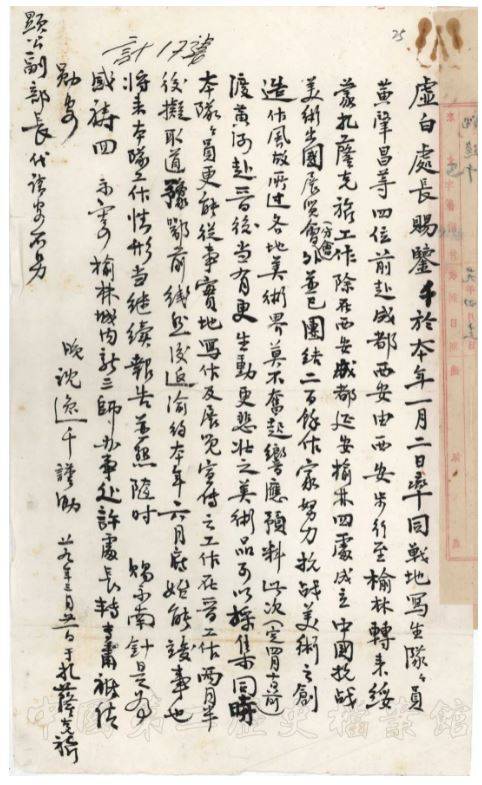 25
計17號
虛白處長賜鑒千於本年一月二日率同戰地寫生隊々員
黃肇昌等四位前赴成都西安由西安步行至榆林轉來綏
蒙扎薩克旗工作除在西安成都延安榆林四處成立中國抗战
美術出國展览會(分會)外並已團結二百餘作家努力抗战美術之創
造作風故所过各地美術界莫不奮起響應預料此次(定四月十日前)
渡黄河赴晋後当有更生動更悲壯之美術品可以採集同時
本隊々員更能從事實地寫作及展览宣傳之工作在晋工作兩月半
後擬取道豫鄂前綫然後返渝約本年六月底始能竣事也
將来本隊工作情形当继续報告並 隨时 賜示南針是為
感禱 示寄榆林城内新三師办事处許處長轉專肅祗頌
勛安
晚沈逸千謹啟 廿九年三月廿 日于扎薩克旗
顯公副部長代請安不另
中国第二歷史檔案館